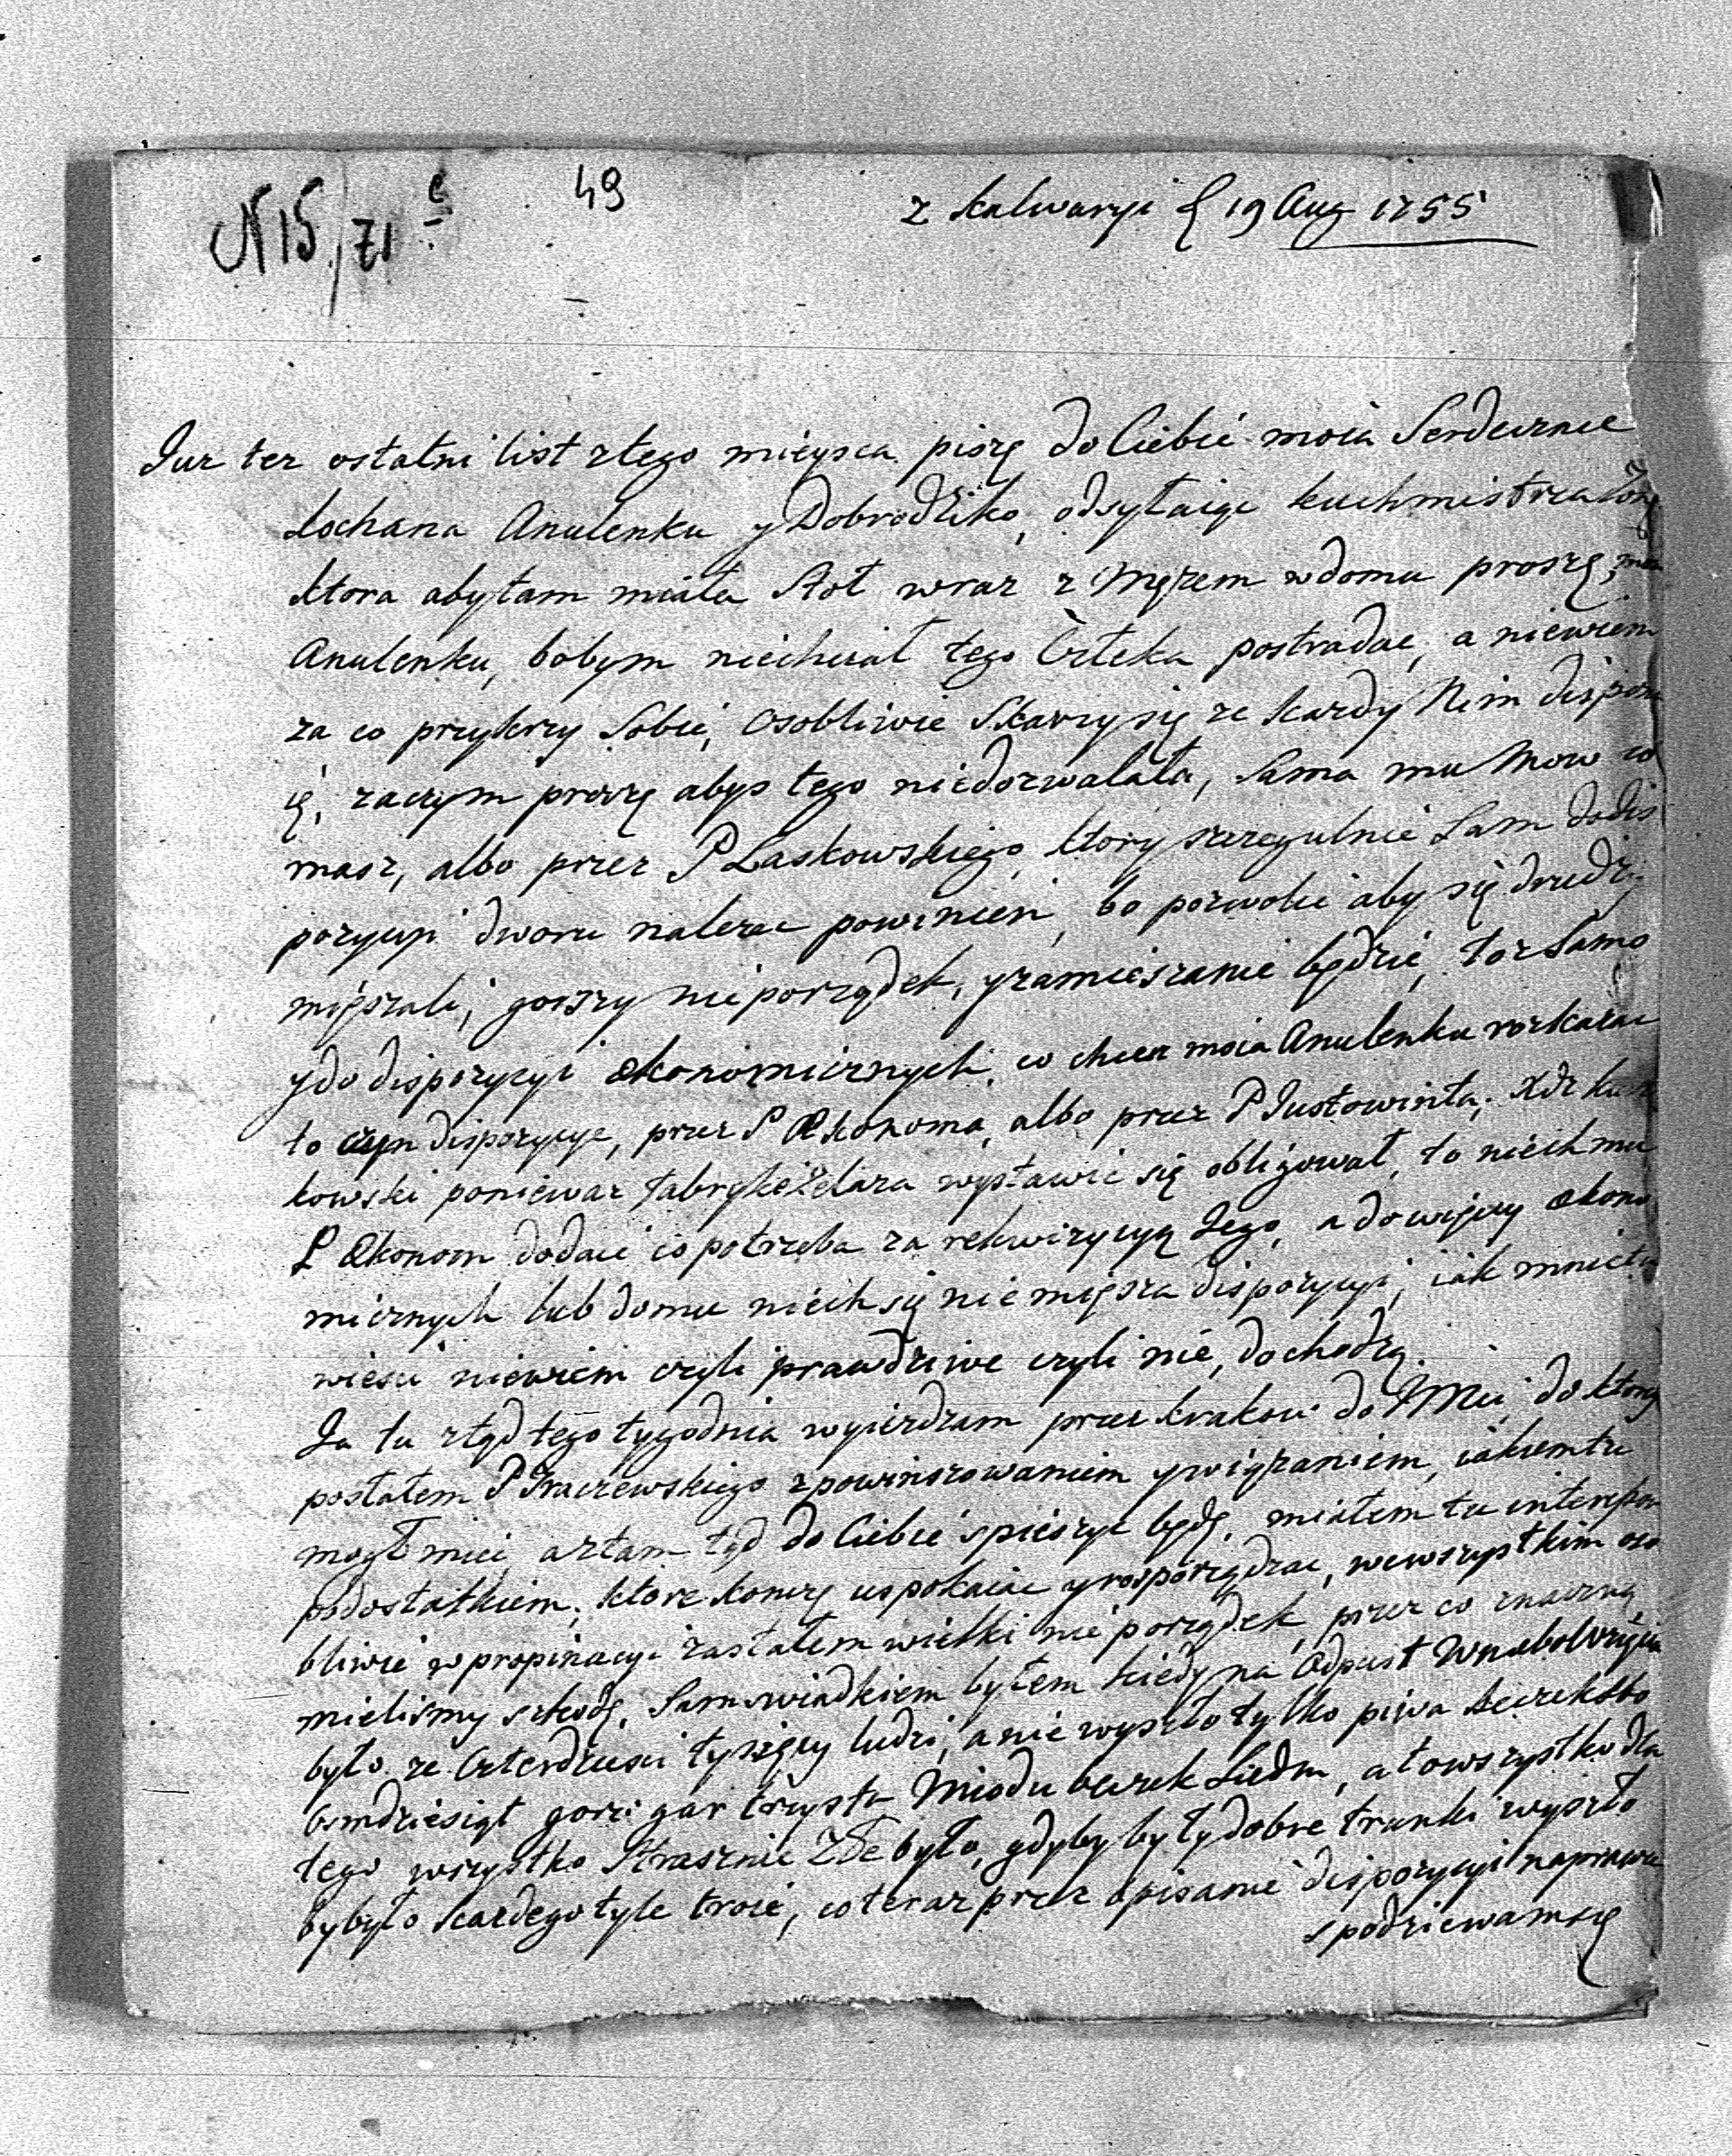 N 15./71 e
49
z Kalwaryi d 19 Aug 1755
Iuz tez ostatni list ztego mieysca piszę do Ciebie moia Serdecznie
kochana Anulenku y Dobrodziko, odsyłaiąc kuchmistrza żonę
ktora aby tam miała stoł wraz z Męzem w domu proszę, moia
Anulenku, bobym niechciał tego Człeka postradac, a niewiem
za co przykrzy sobie, osobliwie skarzy się ze kazdy Nim dispon
ię, zaczym proszę abys tego niedozwalała, sama mu mow co
masz, albo przez P Laskowskiego, ktory szczegulnie sam do dis
pozycyi dworu nalezec powinien, bo pozwolic aby się drudzy
mięszali, gorszy nieporządek, y zamieszanie będzie, toz samo
y do dispozycyi œkonomicznych, co chcesz moia Anulenku rozkazac
to czyn dispozycye, przez P Œkonoma, albo przez P Iustowinta, Xdz
kowski poniewaz fabrykę żelaza wystawic się obligował, to niech mu
P Œkonom dodaie co potrzeba za rekwizycyą Iego, a do więcey œkono
micznych lub domu niech się nie mięsza dispozycyi, iak mnie tu
wiesci niewiem czyli prawdziwe czyli nie, dochodzą.
Ja tu ztąd tego tygodnia wyiezdzam przez krakow do IMci, do ktorey
posłałem P Traczewskiego z powinszowaniem y wiązaniem, iakiem tu
mogł miec, a ztam tąd do Ciebie spieszyc będę, miałem tu interessow
podostatkiem, ktore konczę uspokaiac y rosporządzac, wewszystkim oso
bliwie w propinacyi zastałem wielki nieporządek, przez co znaczną
mielismy szkodę, sam swiadkiem byłem kiedy na Odpust Wniebowzięcia
było ze czterdziesci tysięcy ludzi, a nie wyszło tylko piwa beczek sto
osmdziesiąt gorz: gar trzysta Miodu beczek siedm, a to wszystko dla
tego wszystko strasznie złe było, gdyby były dobre trunki wyszło
by było kazdego tyle troie, co teraz przez opisanie dispozycyi naprawic
spodziewam się